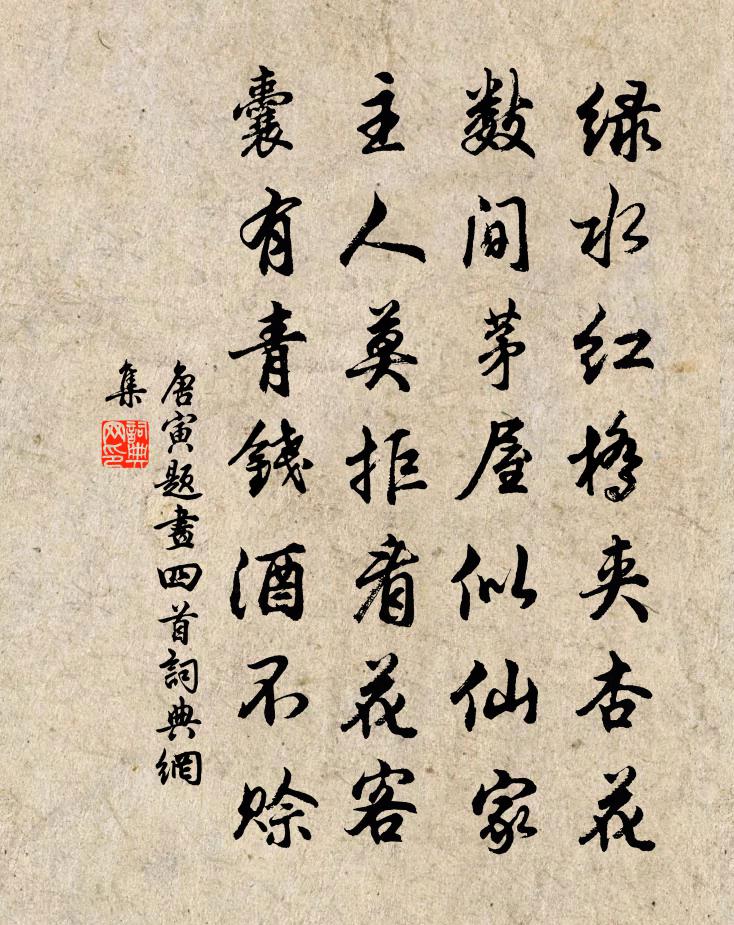 绿水红桥夹杏花
数间茅屋似仙家
主人莫拒看花客
囊有青錢酒不赊
唐寅题畫四首詞典網
集
詞典
网印